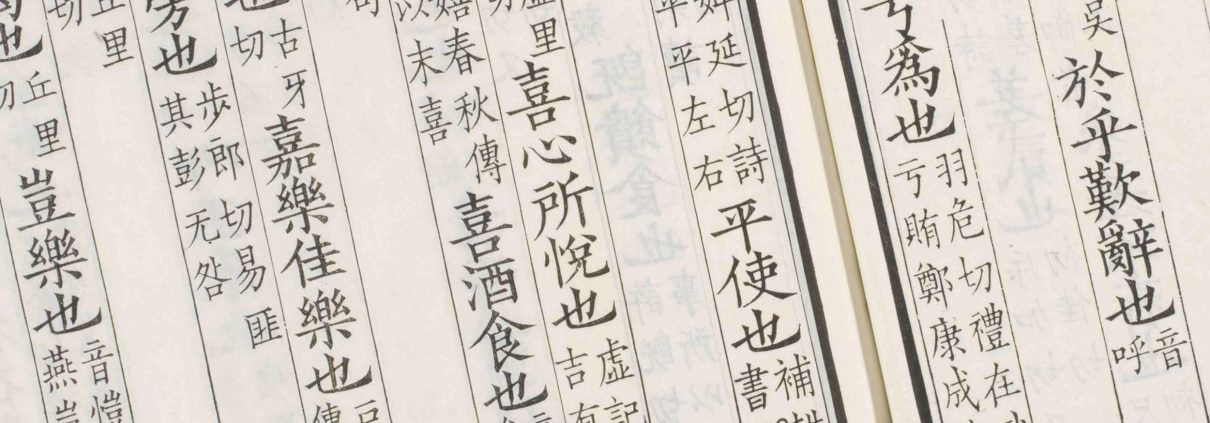 吴
於乎歎辭也
音
呼
亏爲也
羽危切禮在
亏賄鄭康成
延切詩
平平左右
平使也
補
書
虚里
喜心所悦也
虚記
吉有
嬉春秋傳
以末喜
喜酒食也
也
古牙
切
嘉樂佳樂也
旁也
步郎切易匪
其彭无咎
丘里
切
也
丘里
切
豈樂也
音愷
燕豈